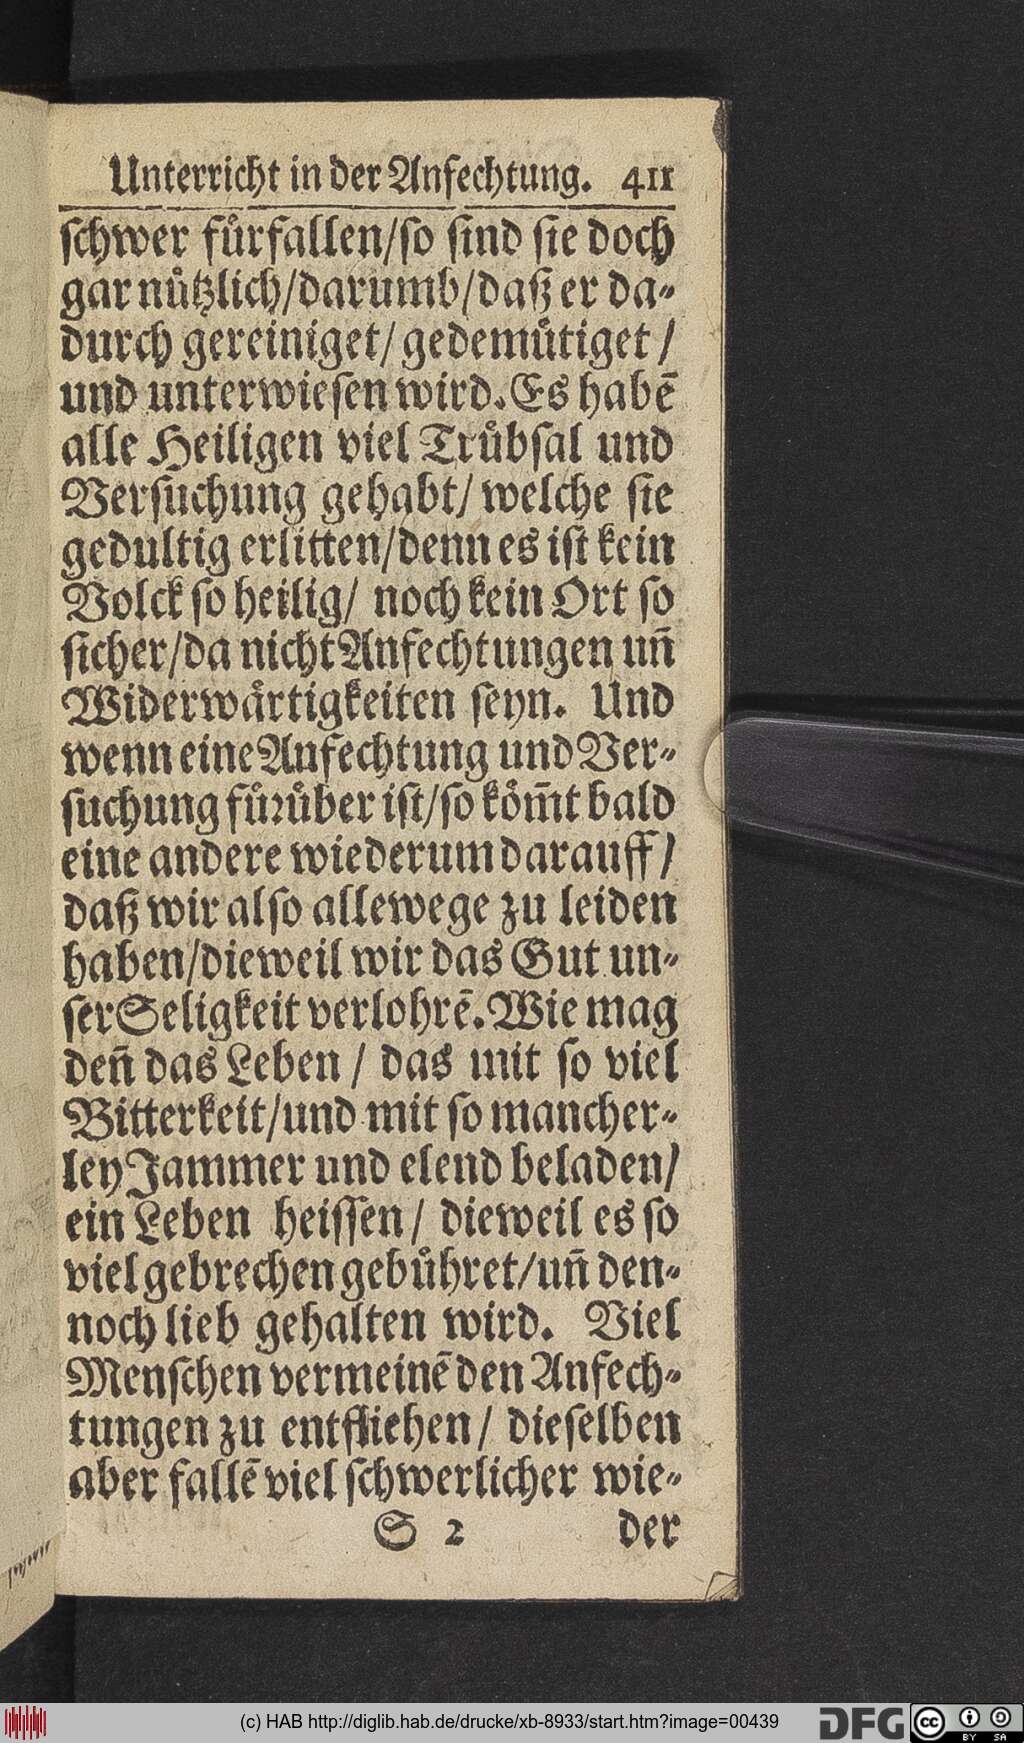 Unterricht in der Anfechtung. 411
ſchwer fuͤrfallen/ſo ſind ſie doch
gar nuͤtzlich/darumb/daß er da-
durch gereiniget/ gedemuͤtiget /
und unterwieſen wird. Es habē
alle Heiligen viel Truͤbſal und
Verſuchung gehabt/ welche ſie
gedultig erlitten/denn es iſt kein
Volck ſo heilig/ noch kein Ort ſo
ſicher/da nicht Anfechtungen uñ
Widerwaͤrtigkeiten ſeyn. Und
wenn eine Anfechtung und Ver-
ſuchung fuͤꝛuͤber iſt/ſo koͤm̃t bald
eine andere wiederum darauff /
daß wir alſo allewege zu leiden
haben/dieweil wir das Gut un-
ſer Seligkeit verlohrē. Wie mag
deñ das Leben / das mit ſo viel
Bitterkeit/und mit ſo mancher-
ley Jammer und elend beladen/
ein Leben heiſſen / dieweil es ſo
viel gebrechen gebuͤhret/uñ den-
noch lieb gehalten wird. Viel
Menſchen vermeinē den Anfech-
tungen zu entfliehen / dieſelben
aber fallē viel ſchwerlicher wie-
S 2 der
(c) HAB http://diglib.hab.de/drucke/xb-8933/start.htm?image=00439
DFG
cc BY SA